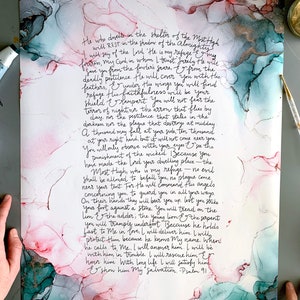 He who dwells in the shelter of the Most High
will REST in the shadow of the Almighty.
I will say of the Lord, "He is my refuge & my
fortress, My God, in whom I trust. Surely He will
save you from the fowler's snare & from the
deadly pestilence. He will cover you with His
feathers, & under His wings you will find
refuge. His faithfulness will be your
shield & rampart. You will not fear the
terror of night nor the arrow that flies by
day, nor the pestilence that stalks in the
darkness nor the plague that destroys at midday.
A thousand may fall at your side, ten thousand
at your right hand but it will not come near you.
You will only observe with your eyes & see the
punishment of the wicked. Because you
have made the Lord your dwelling place - the
Most High, who is my refuge - no evil
shall be allowed to befall you, no plague come
near your tent. For He will command His angels
concerning you to guard you in all your ways.
On their hands they will bear you up, lest you strike
your foot against a stone. You will tread on the
lion & the adder, the young lion & the serpent
you will trample underfoot. Because he holds
fast to Me in love, I will deliver him; I will
protect him, because he knows My name. When
he calls to Me, I will answer him; I will be
with him in trouble. I will rescue him &
honor him. With long life I will satisfy him
& show him My salvation. Psalm 91